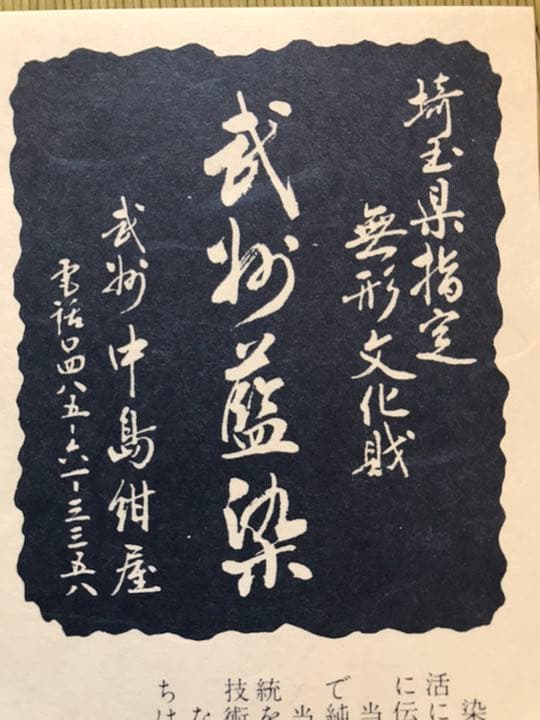 埼玉県指定
無形文化財
武州藍染
武州中島紺屋
電話〇四八五-六一-三三五八
染
活に
に伝
当
で純
当
統を
技術
な
ちは